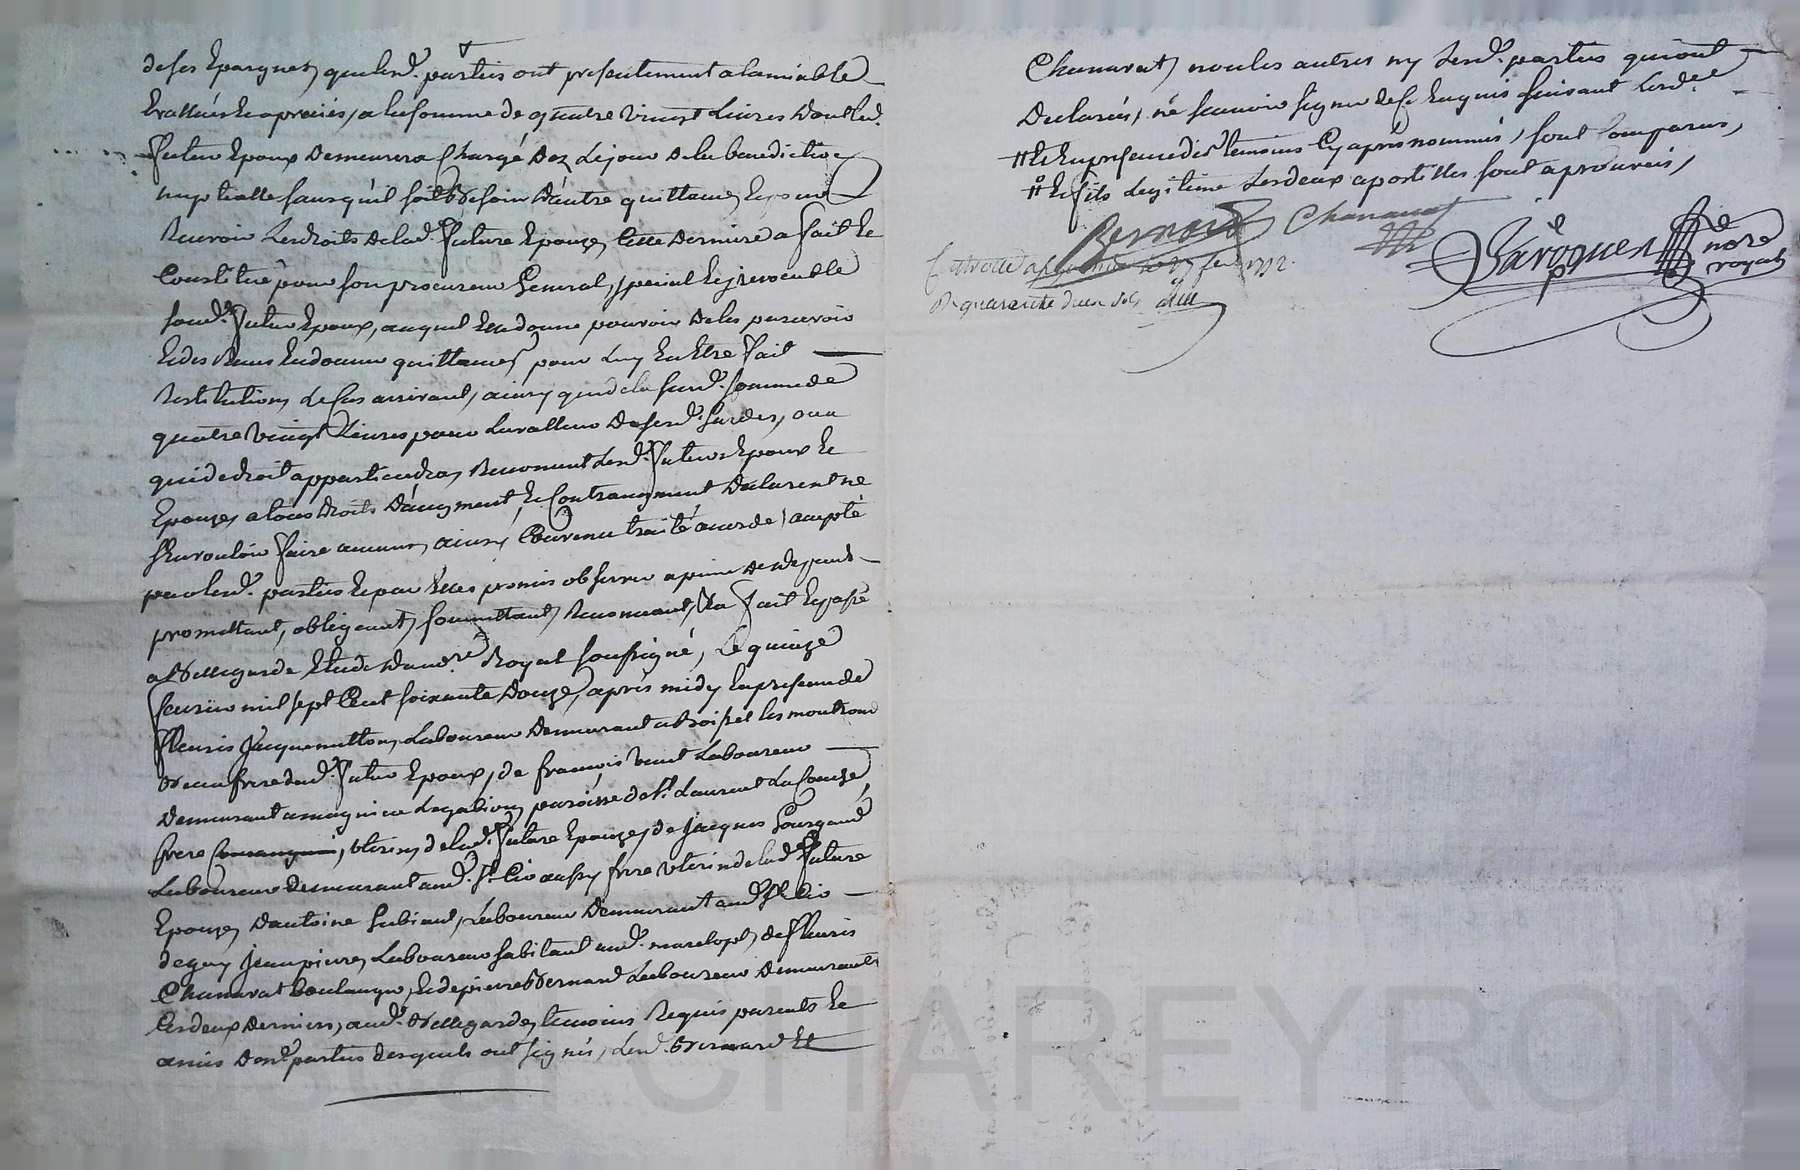 de ses Epargnes, que lesd. parties ont presentement a lamiable
Evallués Et apreciés, a la somme de quatre vingt Livres Dont led.
futur Epoux Demeurera Chargé Dez Le jour De la benediction
nuptialle sans qu'il soit Besoin D'autre quittance, Et pour
Recevoir Les droits De lad. future Epouze, Cette Derniere a fait Et
Constitué pour son procureur General, special Et jrrevocable
sond. futur Epoux, auquel Elle donne pouvoir De les percevoir
Et des Reçus En donner quittances pour Luy En Etre fait
Restitution, Le Cas arrivant, ainsy que de la susd. somme de
quatre Vingt Livres pour La valleur De sesd. hardes, ou a
qui de droit appartiendra, Renoncent Lesd. futurs Epoux Et
Epouze, a tous Droits D'augment, Et Contraugment Declarent ne
s'En vouloir faire aucun, ainsy Convenu traité accordé, accepté
par lesd. parties Et par Elles promis observer a peine De Depens
promettant, obligeant, soumettant, Renonceant, &a fait Et passé
a Bellegarde Etude Du nore Royal soussigné, Le quinze
fevrier mil sept Cent soixante Douze, après midy En presence de
fleuris jacquemetton, Laboureur Demeurant a Boisset les montrond
Beau frere dud. futur Epoux, de francois Vvent Laboureur
Demeurant a magnieu Le gabion, paroisse de St. Laurent La Conche,
frere Consanguin, Uterin, de lad. future Epouze, de jacques Gourgaud
Laboureur Demeurant aud. St. Cir aussy frere Uterin de lad. future
Epouze, D'antoine Gubiand, Laboureur Demeurant aud. St. Cir
de guy jean pierre, Laboureur habitant aud. marclopt, de fleuris
Chanavat boulanger, Et de pierre Bernard Laboureur Demeurants
Ces deux Derniers, aud. Bellegarde, temoins Requis parents Et
amis Desd. parties Desquels ont signés, Lesd. Bernard Et
Chanavat, non les autres ny Lesd. parties qui ont
Declarés, ne scavoir signer De Ce Enquis suivant L'orde.
# Et En presence des temoins Cy après nommés, sont Comparus,
# Et fils Legitime Les deux apostilles sont aprouvés,
Bernard Chanavat
de
nore
royal
Controllé a le 27 fev. 1772.
R. quarante deux sols